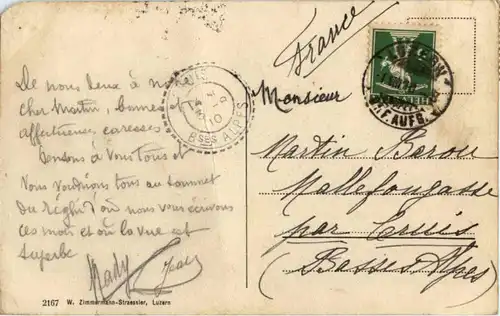 De nous deux à notre
cher Martin, bonnes et
affectueuses caresses
Pensons à Vous tous et
Vous voudrions tous au sommet
du Righi d'où nous vous écrivons
ces mots et où la vue est
superbe
Mady
France
Monsieur
Martin Berou
Mallefougasse
par Cruis
(Basses-Alpes)
CRUIS
10
BSES ALPES
LUZERN
BRF. AUFG.
2167 W. Zimmermann-Straessler, Luzern